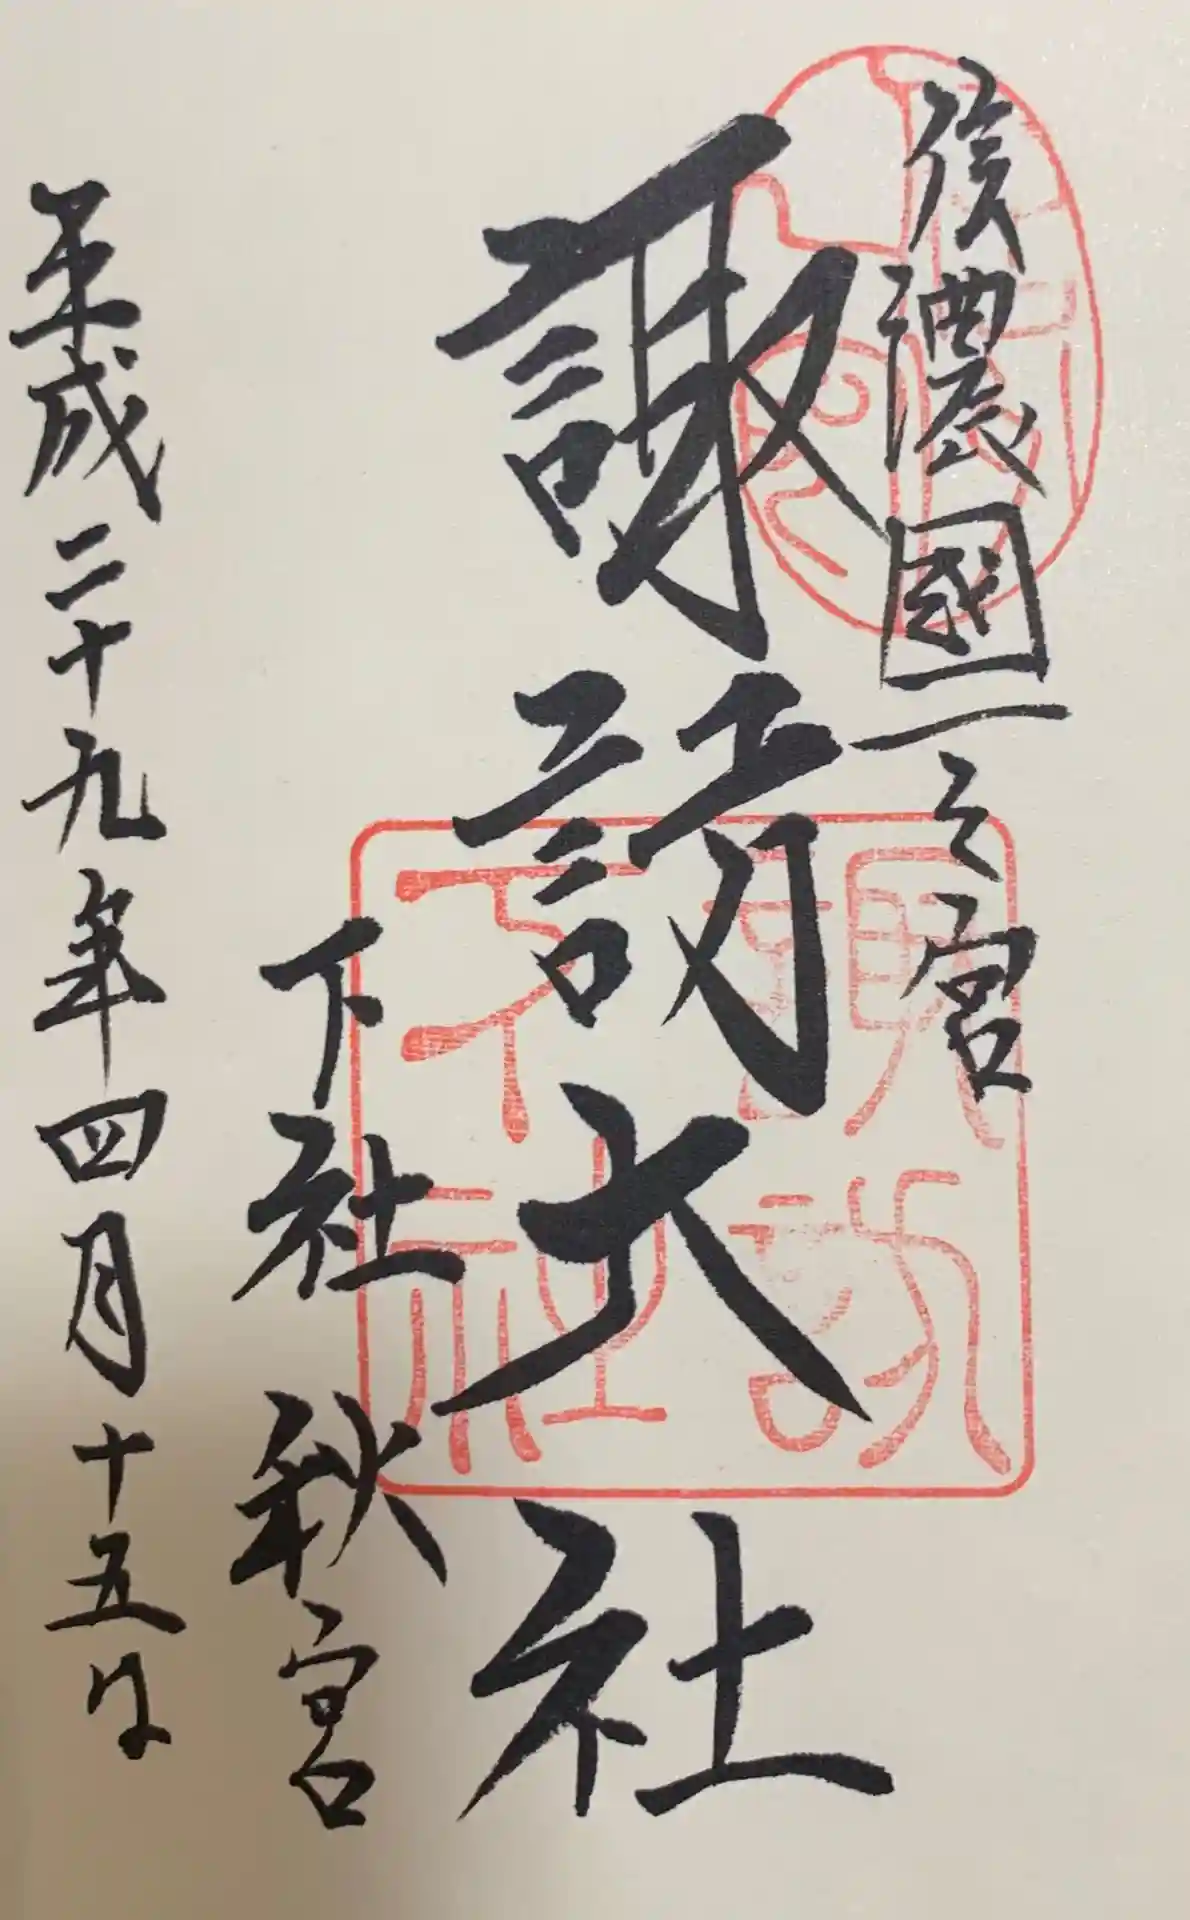 信濃國一之宮
諏訪大社
下社秋宮
平成二十九年四月十五日
諏訪
下社